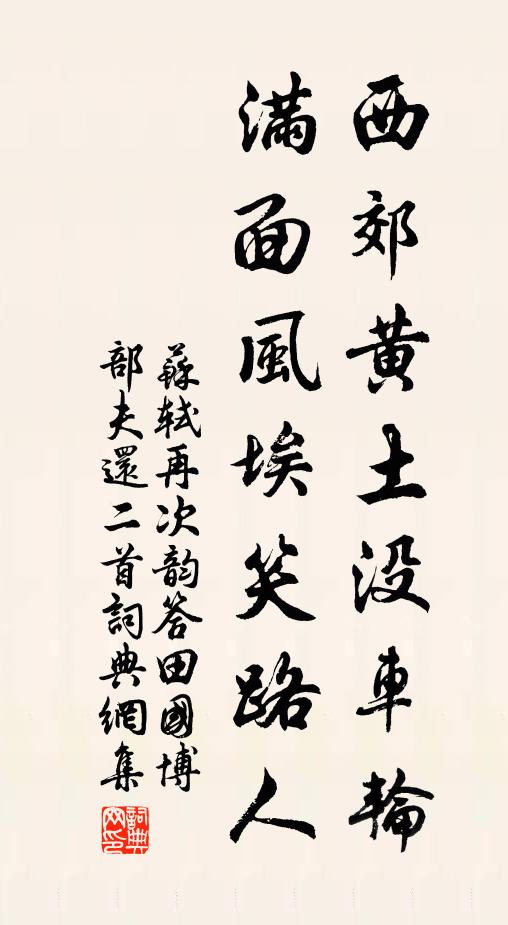 西郊黄土没車輪
滿面風埃笑路人
蘇軾再次韵答田國博
部夫還二首詞典網集
詞典网印